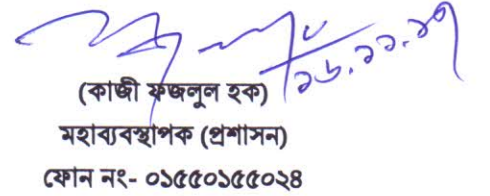 ১৬.১১.১৭
(কাজী ফজলুল হক)
মহাব্যবস্থাপক (প্রশাসন)
ফোন নং- ০১৫৫০১৫৫০২৪